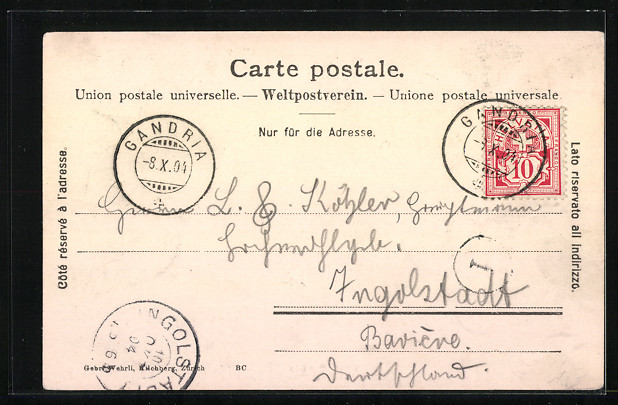 Carte postale.
Union postale universelle. — Weltpostverein. — Unione postale universale
Nur für die Adresse.
GANDRIA
-8.X.04
GANDRIA
-8.X.04
10
Côté réservé à l'adresse.
Lato riservato all indirizzo.
Herrn L. E. Köhler, Hauptmann
1
Ingolstadt
Bavière.
Deutschland.
INGOLSTADT
10
04
Gebr. Wehrli, Kilchberg, Zürich BC